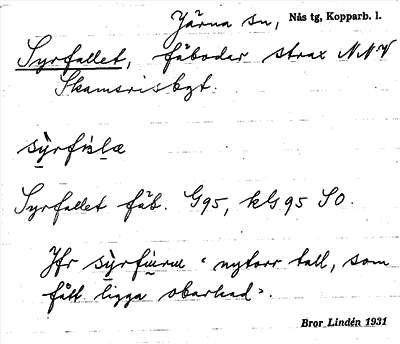 Järna sn, Nås tg, Kopparb. l.
Syrfallet, fäbodar strax NNV
Skamsrisbgt.
Syrfallet fäb. G95, kG95 SO.
Jfr "nytorr tall, som
fått ligga obarkad".
Bror Lindén 1931